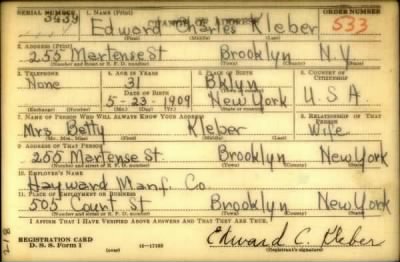 SERIAL NUMBER 1. NAME (Print) ORDER NUMBER
3439 Edward Charles Kleber 533
(First) (Middle) (Last)
2. ADDRESS (Print)
255 Martense St Brooklyn N.Y
(Number and street or R. F. D. number) (Town) (County) (State)
3. TELEPHONE 4. AGE IN YEARS 5. PLACE OF BIRTH 6. COUNTRY OF CITIZENSHIP
None 31 Bklyn
DATE OF BIRTH
5-23-1909 New York U.S.A.
(Exchange) (Number) (Mo.) (Day) (Yr.) (State or country)
7. NAME OF PERSON WHO WILL ALWAYS KNOW YOUR ADDRESS 8. RELATIONSHIP OF THAT PERSON
Mrs Betty Kleber Wife
(Mr., Mrs., Miss) (First) (Middle) (Last)
9. ADDRESS OF THAT PERSON
255 Martense St. Brooklyn New York
(Number and street or R. F. D. number) (Town) (County) (State)
10. EMPLOYER'S NAME
Hayward Manf. Co.
11. PLACE OF EMPLOYMENT OR BUSINESS
505 Court St Brooklyn New York
(Number and street or R. F. D. number) (Town) (County) (State)
I AFFIRM THAT I HAVE VERIFIED ABOVE ANSWERS AND THAT THEY ARE TRUE.
REGISTRATION CARD
D. S. S. Form 1 Edward C. Kleber
(Registrant's signature)